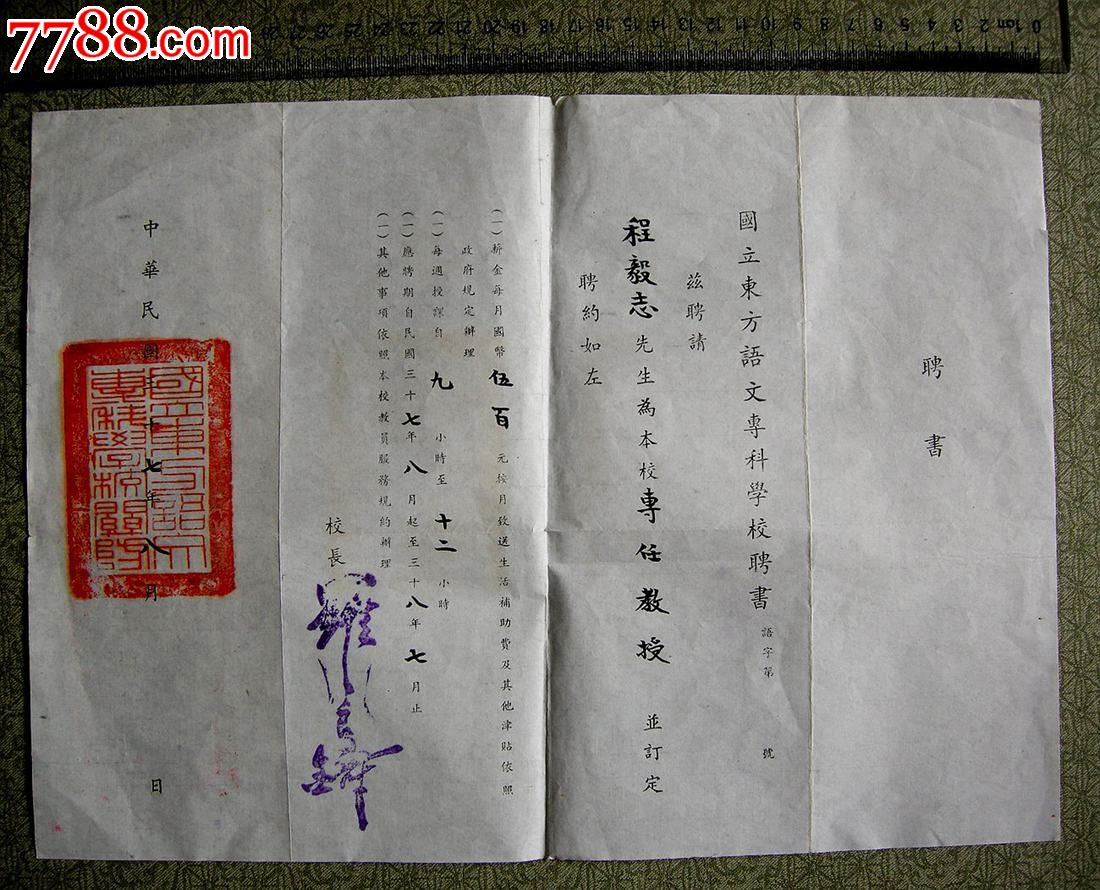 7788.com
0 1cm 2 3 4 5 6 7 8 9 10 11 12 13 14 15 16 17 18 19 20 21 22 23 24 25 26 27
聘書
國立東方語文專科學校聘書 語字第 號
茲聘請
程毅志先生為本校專任教授 並訂定
聘約如左
(一)薪金每月國幣伍百元按月致送生活補助費及其他津貼依照
政府規定辦理
(一)每週授課自九小時至十二小時
(一)應聘期自民國三十七年八月起至三十八年七月止
(一)其他事項依照本校教員服務規約辦理
校長
中華民國三十七年八月 日
國立東方語文
專科學校關防